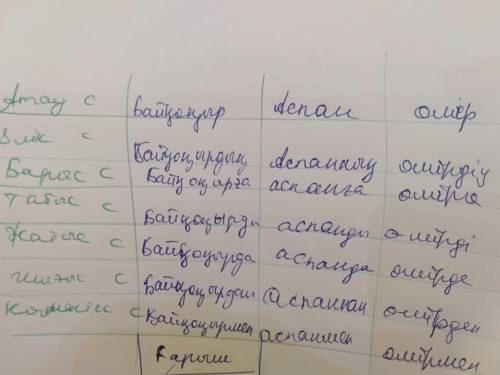 Атау с Байқоңыр Аспан өмір
Ілік с Байқоңырдың Аспанның өмірдің
Барыс с Байқоңырға аспанға өмірге
Табыс с Байқоңырды аспанды өмірді
Жатыс с Байқоңырда аспанда өмірде
Шығыс с Байқоңырдан Аспаннан өмірден
Көмектес с Байқоңырмен аспанмен өмірмен
Ғарыш